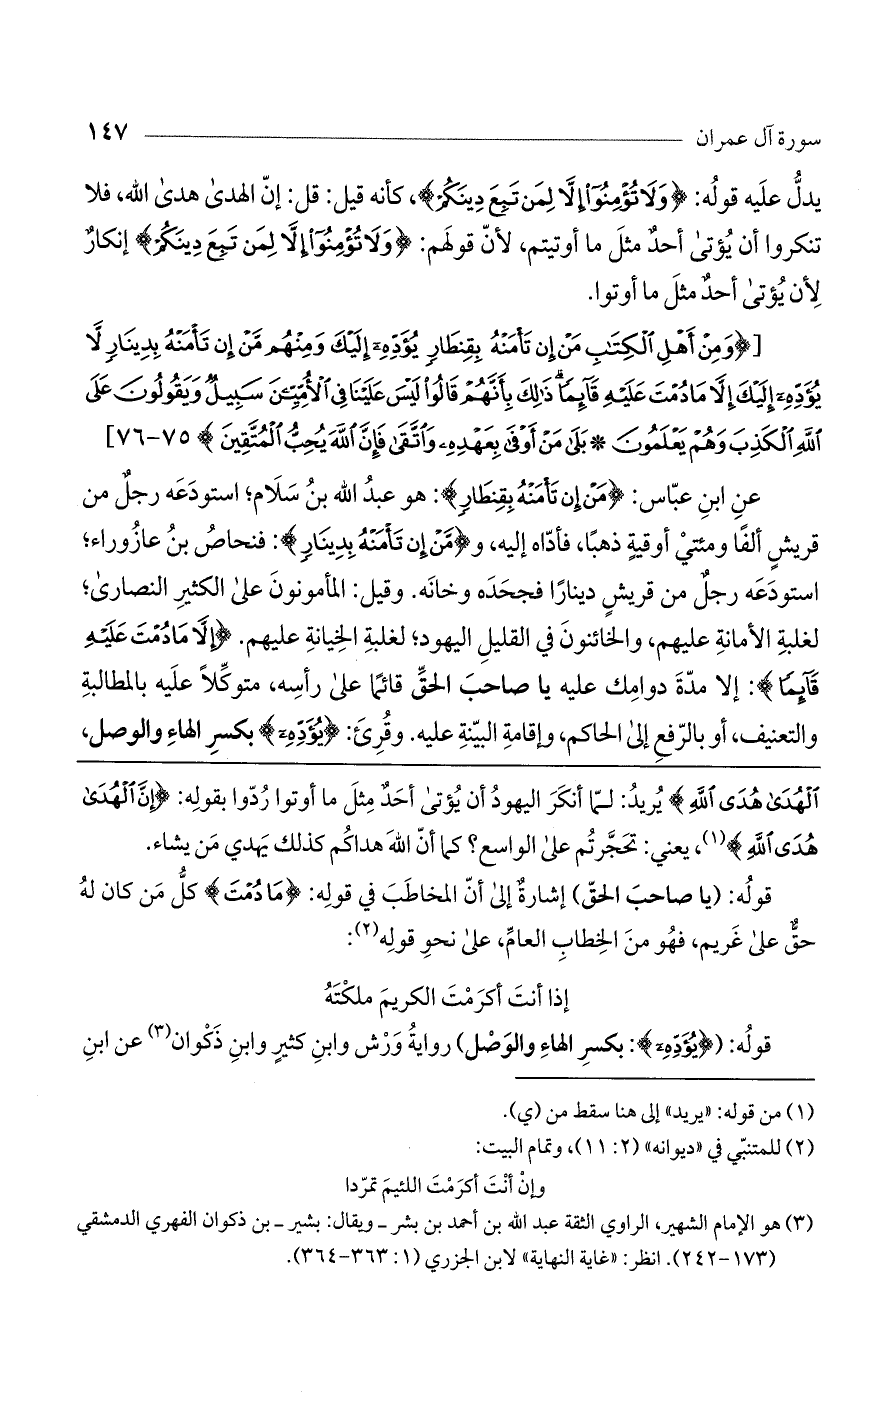 سورة آل عمران ١٤٧
يدلُّ علَيه قولُه: ﴿وَلَا تُؤْمِنُوٓا۟ إِلَّا لِمَن تَبِعَ دِينَكُمْ﴾، كأنه قيل: قل: إنّ الهدىٰ هدىٰ الله، فلا
تنكروا أن يُؤتىٰ أحدٌ مثلَ ما أوتيتم، لأنّ قولَهم: ﴿وَلَا تُؤْمِنُوٓا۟ إِلَّا لِمَن تَبِعَ دِينَكُمْ﴾ إنكارٌ
لِأن يُؤتىٰ أحدٌ مثلَ ما أوتوا.
[﴿وَمِنْ أَهْلِ ٱلْكِتَٰبِ مَنْ إِن تَأْمَنْهُ بِقِنطَارٍ يُؤَدِّهِۦٓ إِلَيْكَ وَمِنْهُم مَّنْ إِن تَأْمَنْهُ بِدِينَارٍ لَّا
يُؤَدِّهِۦٓ إِلَيْكَ إِلَّا مَا دُمْتَ عَلَيْهِ قَآئِمًا ۗ ذَٰلِكَ بِأَنَّهُمْ قَالُوا۟ لَيْسَ عَلَيْنَا فِى ٱلْأُمِّيِّـۧنَ سَبِيلٌ وَيَقُولُونَ عَلَى
ٱللَّهِ ٱلْكَذِبَ وَهُمْ يَعْلَمُونَ * بَلَىٰ مَنْ أَوْفَىٰ بِعَهْدِهِۦ وَٱتَّقَىٰ فَإِنَّ ٱللَّهَ يُحِبُّ ٱلْمُتَّقِينَ﴾ ٧٥-٧٦]
عنِ ابنِ عبّاس: ﴿مَنْ إِن تَأْمَنْهُ بِقِنطَارٍ﴾: هو عبدُ الله بنُ سَلَام؛ استودَعَه رجلٌ من
قريشٍ ألفًا ومئتيْ أوقيةٍ ذهبًا، فأدّاه إليه، و﴿مَّنْ إِن تَأْمَنْهُ بِدِينَارٍ﴾: فنحاصُ بنُ عازُوراء؛
استودَعَه رجلٌ من قريشٍ دينارًا فجحَدَه وخانَه. وقيل: المأمونونَ علىٰ الكثيرِ النصارىٰ؛
لغلبةِ الأمانةِ عليهم، والخائنونَ في القليلِ اليهود؛ لغلبةِ الخِيانةِ عليهم. ﴿إِلَّا مَا دُمْتَ عَلَيْهِ
قَآئِمًا﴾: إلا مدّةَ دوامِك عليه يا صاحبَ الحقِّ قائمًا علىٰ رأسِه، متوكِّلاً علَيه بالمطالبةِ
والتعنيف، أو بالرّفعِ إلىٰ الحاكم، وإقامةِ البيّنةِ عليه. وقُرِئَ: ﴿يُؤَدِّهِۦٓ﴾ بكسرِ الهاءِ والوصل،
ٱلْهُدَىٰ هُدَى ٱللَّهِ﴾ يُريدُ: لـمّا أنكَرَ اليهودُ أن يُؤتىٰ أحَدٌ مِثلَ ما أوتوا رُدّوا بقولِه: ﴿إِنَّ ٱلْهُدَىٰ
هُدَى ٱللَّهِ﴾(١)، يعني: تحَجَّرتُم علىٰ الواسع؟ كما أنّ اللهَ هداكُم كذلك يَهدي مَن يشاء.
قولُه: (يا صاحبَ الحقّ) إشارةٌ إلىٰ أنّ المخاطَبَ في قولِه: ﴿مَا دُمْتَ﴾ كلُّ مَن كان لهُ
حقٌّ علىٰ غَريم، فهُو منَ الخِطابِ العامِّ، علىٰ نحوِ قولِه(٢):
إذا أنتَ أكرَمْتَ الكريمَ ملكْتَهُ
قولُه: (﴿يُؤَدِّهِۦٓ﴾: بكسرِ الهاءِ والوَصْل) روايةُ وَرْش وابنِ كثيرٍ وابنِ ذَكْوان(٣) عن ابنِ
(١) من قوله: «يريد» إلى هنا سقط من (ي).
(٢) للمتنبّي في «ديوانه» (٢: ١١)، وتمام البيت:
وإنْ أنْتَ أكرَمْتَ اللئيمَ تمرّدا
(٣) هو الإمام الشهير، الراوي الثقة عبد الله بن أحمد بن بشر ـ ويقال: بشير ـ بن ذكوان الفهري الدمشقي
(١٧٣-٢٤٢). انظر: «غاية النهاية» لابن الجزري (١: ٣٦٣-٣٦٤).